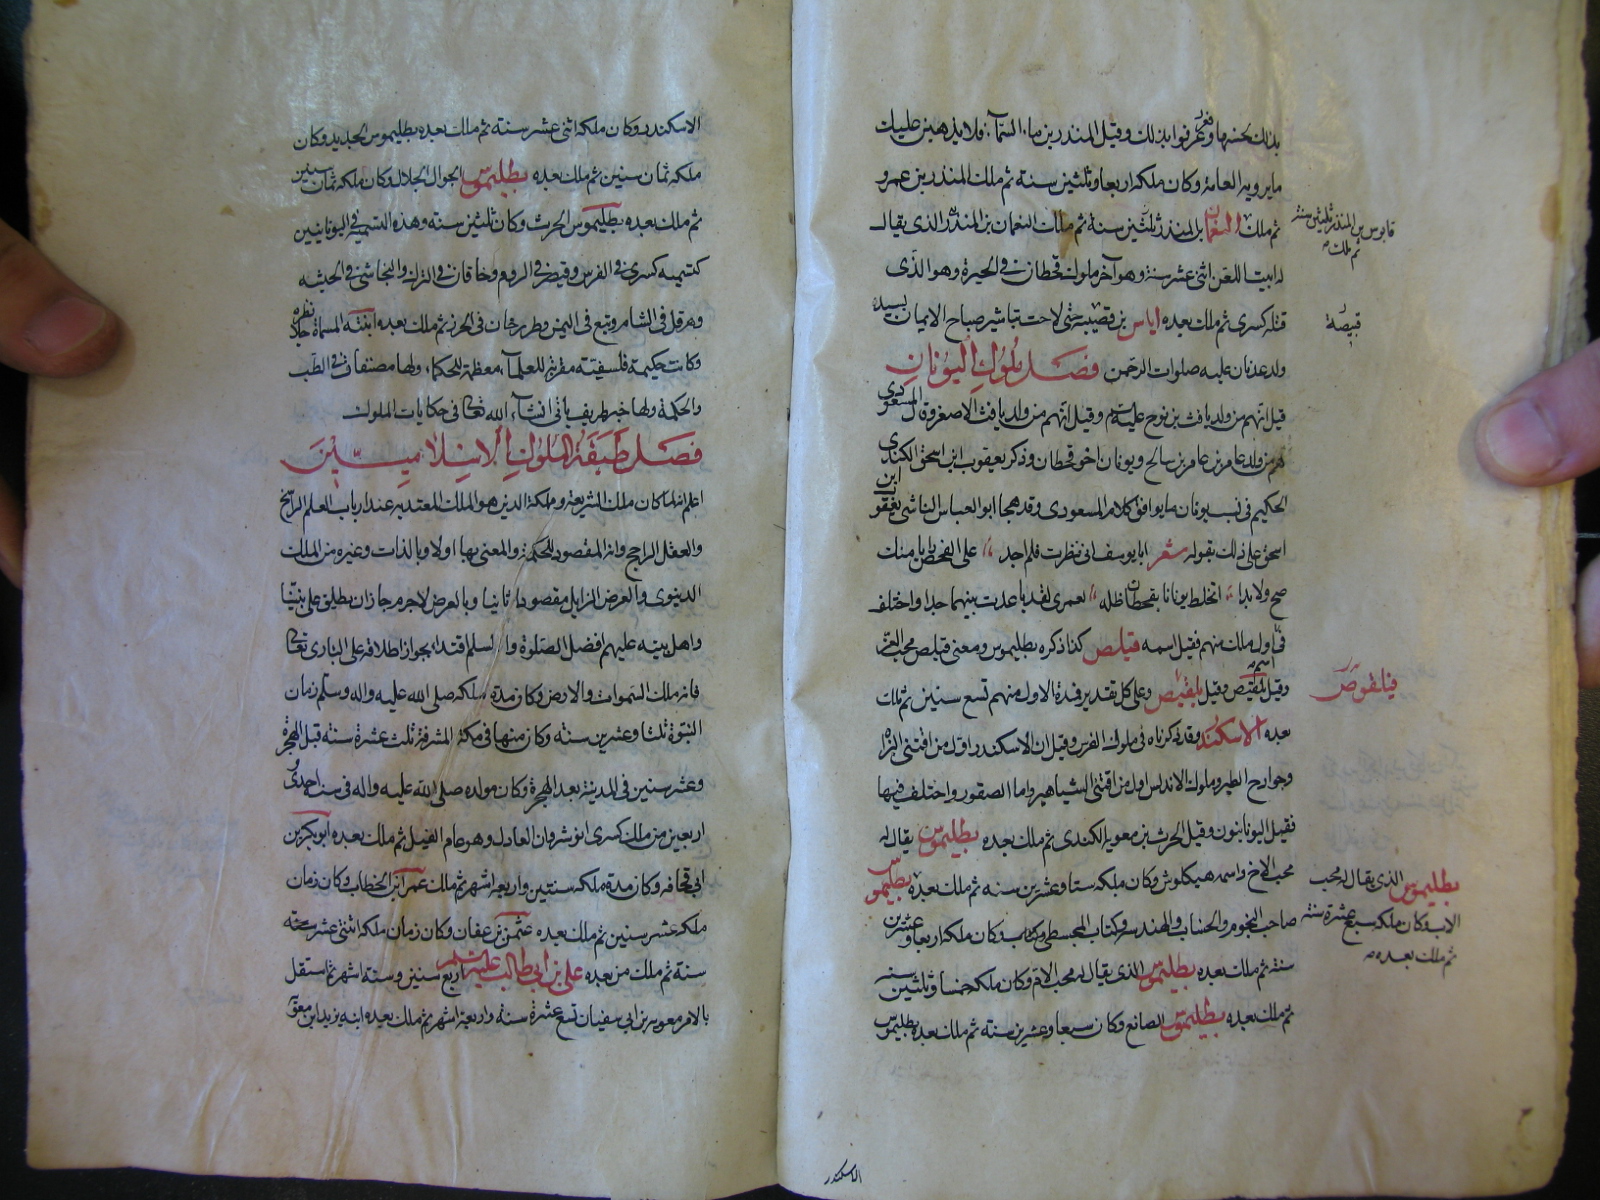 بذلك لحسنها وقعدكم فزفوا بذلك وقيل المنذر بن ماء السماء فلا يذهبن عليك
ما يرويه العامة وكان ملكه اربعا وثلثين سنة ثم ملك المنذر بن عمرو
ثم ملك النعمان بن المنذر ثلثين سنة ثم ملك النعمان بن المنذر الذي يقال
قابوس بن المنذر ثلثين سنة
ثم ملك
له ابيت اللعن اثنى عشر سنة وهو آخر ملوك قحطان في الحيرة وهو الذي
قتله كسرى ثم ملك بعده اياس بن قصيبة حتى لاحت تباشر صباح الايمان بسيد
قبيصة
ولد عدنان عليه صلوات الرحمن فصل ملوك اليونان
قيل انهم من ولد يافث بن نوح عليه السلم وقيل انهم من ولد يافث الاصغر وقال المسعودي
هم من ولد عامر بن عامر بن سالح ويونان اخو قحطان وذكر يعقوب ابن اسحق الكندي
الحكيم في نسب يونان ما يوافق كلام المسعودي وقد هجا ابو العباس الناشي يعقوب ابن
اسحق على ذلك بقوله شعر ابا يوسف اني نظرت فلم اجد على الفحص رايا منك
صح ولا بدا اتخلط يونانا بقحطان ظله لعمري لقد باعدت بينهما جدا واختلف
في اول ملك منهم فقيل اسمه فيلبص كذا ذكره بطليموس ومعنى فيلبص محب الفرس
وقيل اسمه يلقيص وقيل يلقيص وعلى كل تقدير فمدة الاول منهم تسع سنين ثم ملك
فيلقوص
بعده الاسكندر وقد ذكرناه في ملوك الفرس وقيل ان الاسكندر اول من اقتنى البزاة
وجوارح الطير وملوك الاندلس اول من اقتنى الشياهير واما الصقور واختلف فيها
فقيل اليونانيون وقيل الحرث بن معوية الكندي ثم ملك بعده بطليموس يقال له
محب الاخ واسمه هيكلوش وكان ملكه ستا وعشرين سنه ثم ملك بعده بطليموس
بطليموس الذي يقال له محب
الاب وكان ملكه سبع عشرة سنة
ثم ملك بعده
صاحب النجوم والحساب والهندسه وكتاب المجسطي وكان ملكه اربعا وعشرين
سنة ثم ملك بعده بطليموس الذي يقال له محب الام وكان ملكه خمسا وثلثين سنه
ثم ملك بعده بطليموس الصانع وكان سبعا وعشرين سنة ثم ملك بعده بطليموس
الاسكندر
الاسكندر وكان ملكه اثنى عشر سنة ثم ملك بعده بطليموس الحديد وكان
ملكه ثمان سنين ثم ملك بعده بطليموس الجوال الجلال وكان ملكه ثمان سنين
ثم ملك بعده بطليموس الحرث وكان ثلثين سنه وهذه التسمية في اليونانيين
كتسميه كسرى في الفرس وقيصر في الروم وخاقان في الترك والنجاشي في الحبشه
وهرقل في الشام وتبع في اليمن وطرخان في الخزر ثم ملك بعده ابنته المسماة
وكانت حكيمة فلسفيته مقربة للعلماء معظمة للحكماء ولها مصنفات في الطب
والحكمة ولها خبر ظريف ياتي انشاء الله تعالى في حكايات الملوك
فصل طبقة الملوك الاسلاميين
اعلم انه لما كان ملك الشريعة وملكة الدين هو الملك المعتد به عند ارباب العلم الراسخ
والعقل الراجح وانه المقصود للحكمة والمعنى بها اولا وبالذات وغيره من الملك
الدنيوي والعرض الزايل مقصودا ثانيا وبالعرض لاجرم جاز ان يطلق على نبينا
واهل بيته عليهم افضل الصلوة والسلم اقتداء بجواز اطلاقه على الباري تعالى
فانه ملك السموات والارض وكان مدة ملكه صلى الله عليه واله وسلم زمان
النبوة ثلثا وعشرين سنه وكان منها في مكة المشرفة ثلث عشرة سنة قبل الهجرة
وعشر سنين في المدينة بعد الهجرة وكان مولده صلى الله عليه واله في سنة احدى و
اربعين من ملك كسرى انوشروان العادل وهو عام الفيل ثم ملك بعده ابو بكر بن
ابي قحافه وكان مدة ملكه سنتين واربعه اشهر ثم ملك عمر ابن الخطاب وكان زمان
ملكه عشر سنين ثم ملك بعده عثمن بن عفان وكان زمان ملكه اثنتي عشر
سنة ثم ملك من بعده علي بن ابي طالب عليه السلم اربع سنين وستة اشهر ثم استقل
بالامر معويه بن ابي سفيان تسع عشرة سنة واربعة اشهر ثم ملك بعده ابنه يزيد ابن معوية